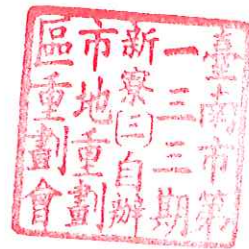 臺南市第
一三三期
新寮㈡自辦
市地重劃
區重劃會